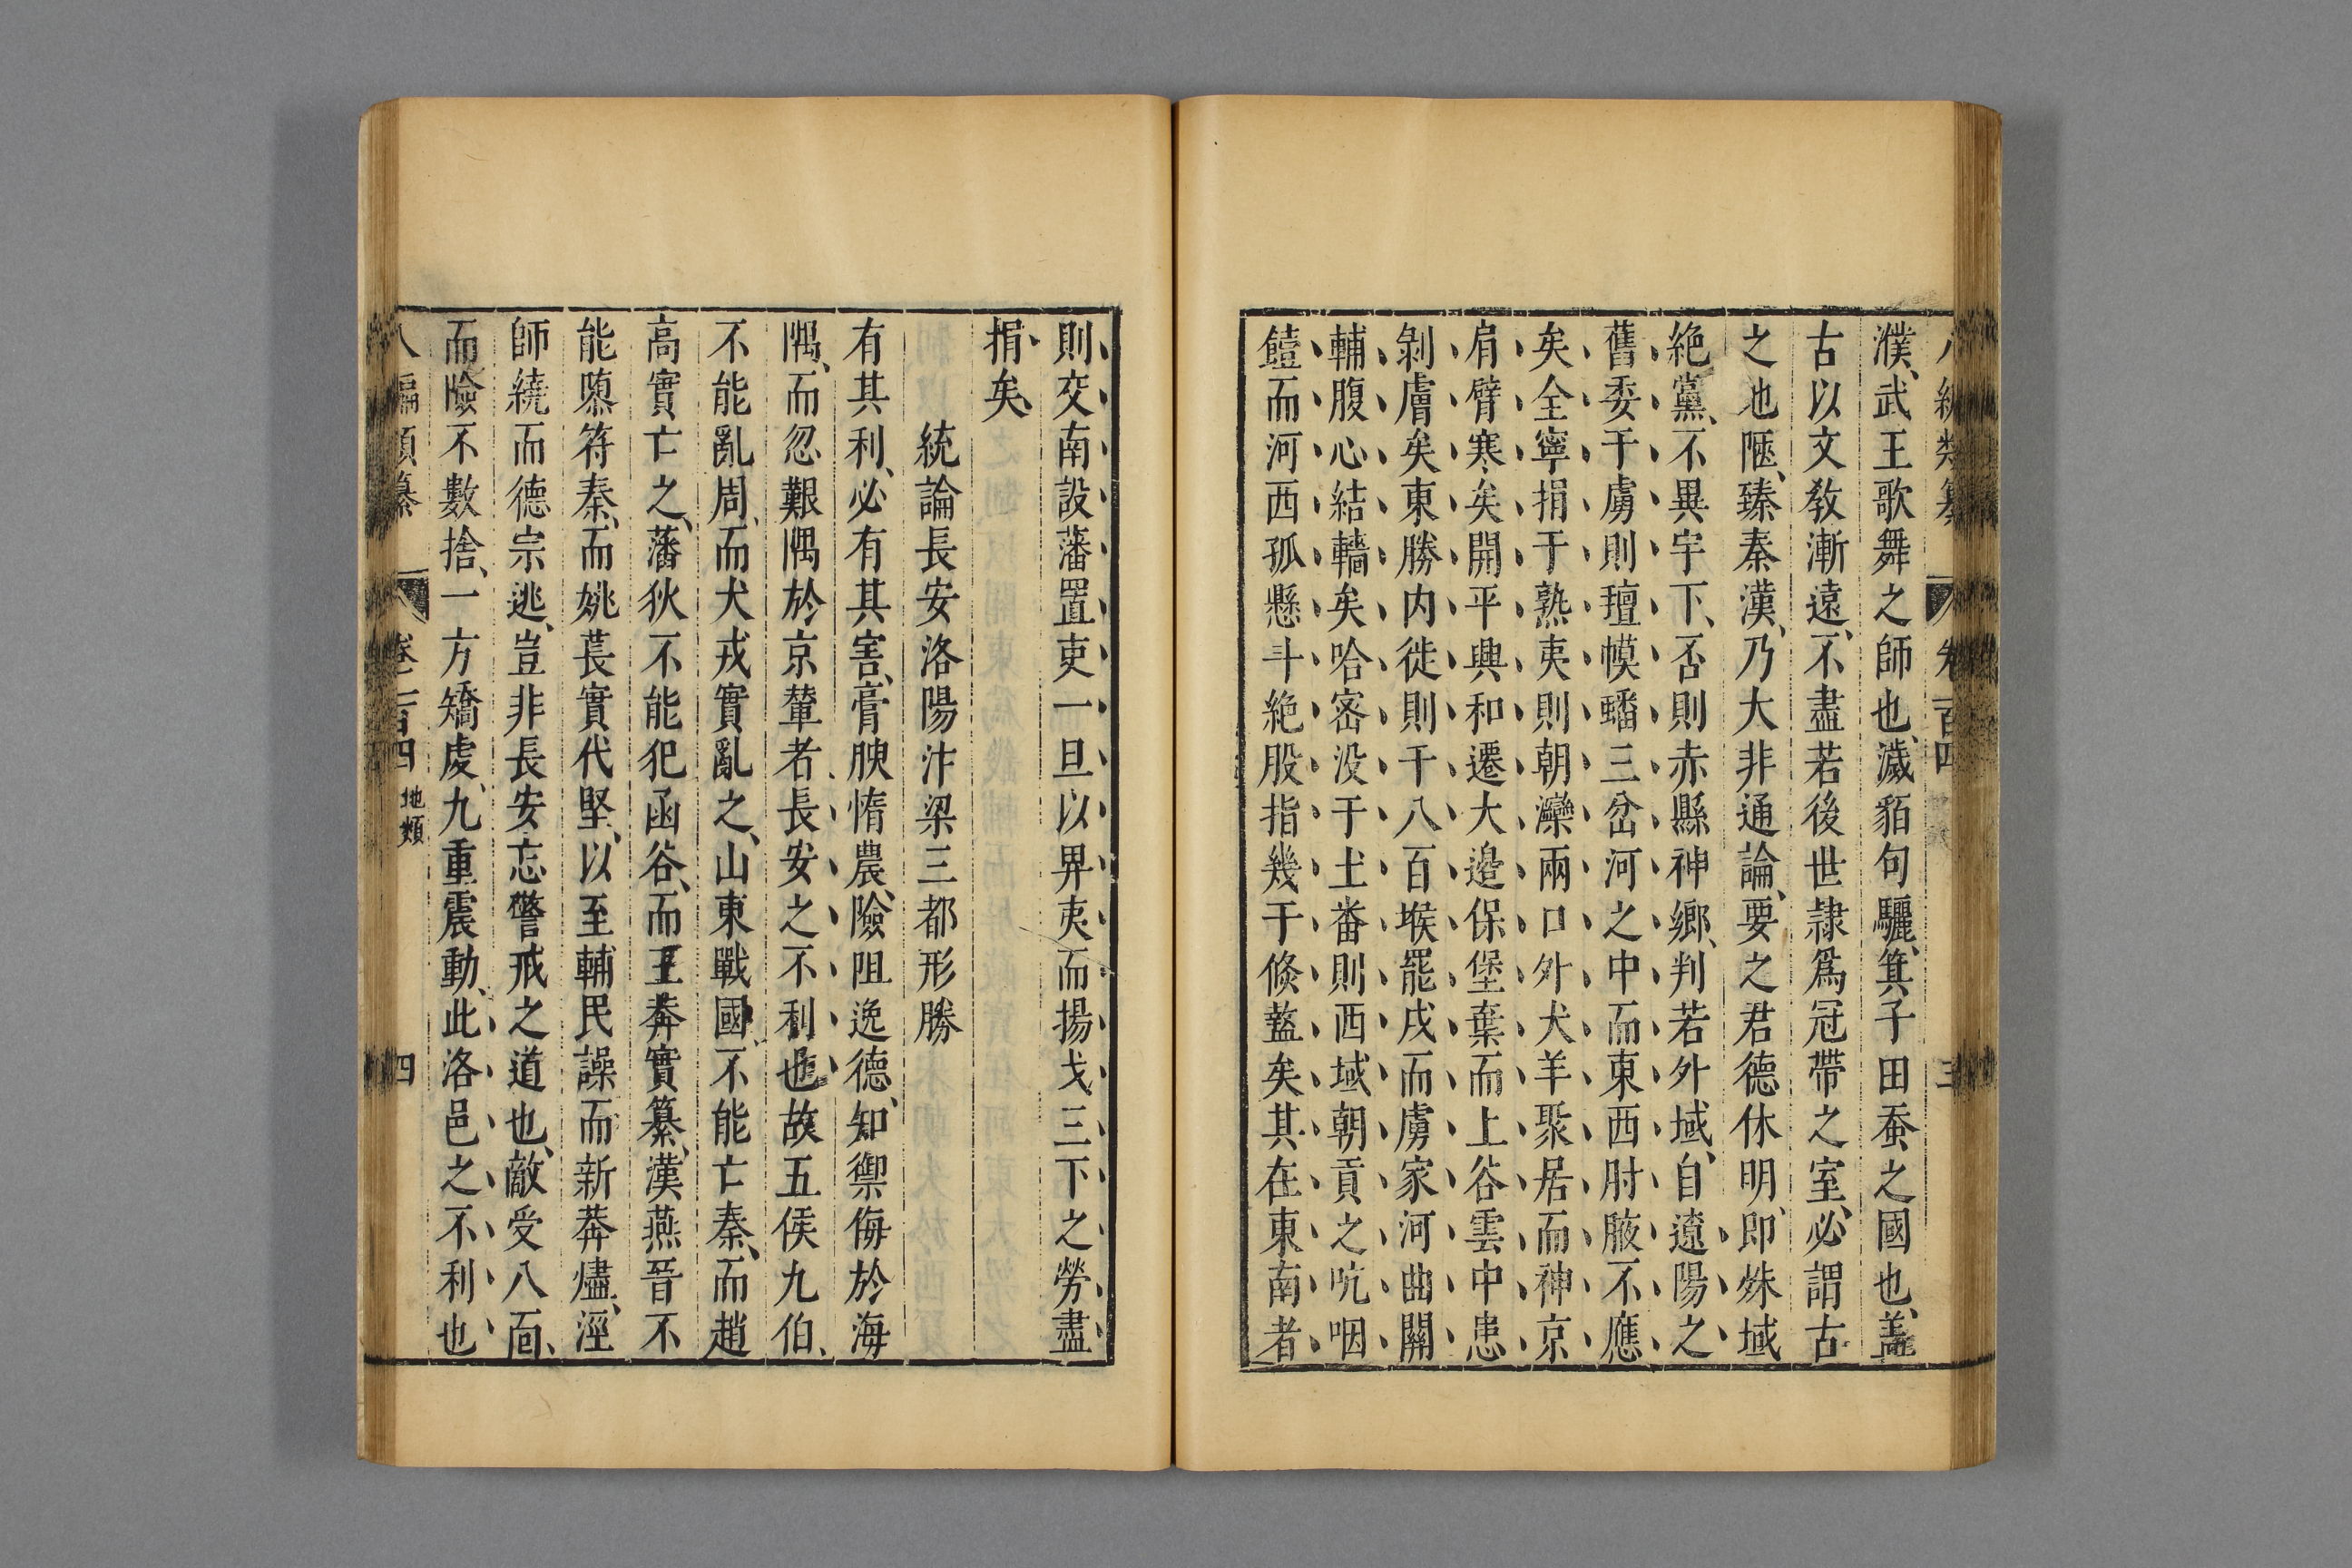 濮、武王歌舞之師也、濊貊句驪、箕子田蚕之國也、盖
古以文教漸遠、不盡若後世隸爲冠帶之室、必謂古
之地陿、臻秦漢、乃大非通論、要之君德休明、即姝域
絶黨、不異宇下、否則赤縣神鄉、判若外域、自遼陽之
舊委干虜則氊幙蟠三岔河之中而東西肘腋不應
矣全寧捐于熟夷則朝灤兩口外犬羊聚居而神京
肩臂寒矣開平興和遷大邉保堡棄而上谷雲中患
剝膚矣東勝内徙則千八百堠罷戍而虜家河曲關
輔腹心結轖矣哈宻没于土畨則西域朝貢之吭咽
饐而河西孤懸斗絶股指幾于倏蓋矣其在東南者
則交南設藩置吏一旦以畀夷而揚戈三下之勞盡
捐矣
統論長安洛陽汴梁三都形勝
有其利、必有其害、膏腴惰農、險阻逸德、知禦侮於海
隅、而忽艱隅於京輦者長安之不利也故五侯九伯、
不能亂周、而犬戎實亂之、山東戰國、不能亡秦、而趙
高實亡之、藩狄不能犯函谷、而王莽實簒、漢燕晉不
能隳符秦、而姚萇實代堅、以至輔民譟而新莽燼、涇
師繞而德宗逃、豈非長安忘警戒之道也、敵受八面、
而險不數捨、一方矯虔、九重震動、此洛邑之不利也
八編類纂 卷一百四 地類 四